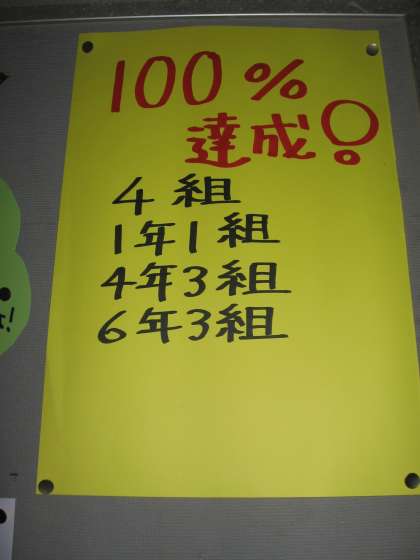 100%
達成!
4組
1年1組
4年3組
6年3組